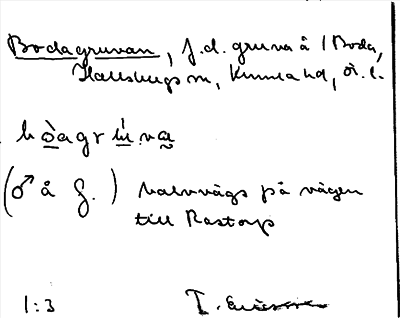 Bodagruvan, f.d. gruva å 1 Boda,
Hallsbergs sn, Kumla hd, Ör. l.
bòagrú̀.va
(♂ å g.) halvvägs på vägen
till Rastorp
1:3 T. Ericsson